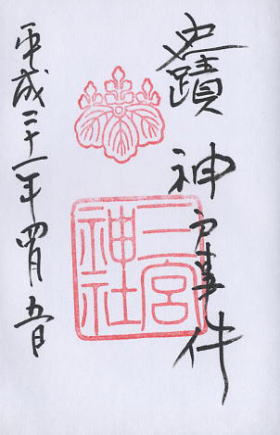 史蹟 神戸事件
三宮神社
平成二十一年四月五日